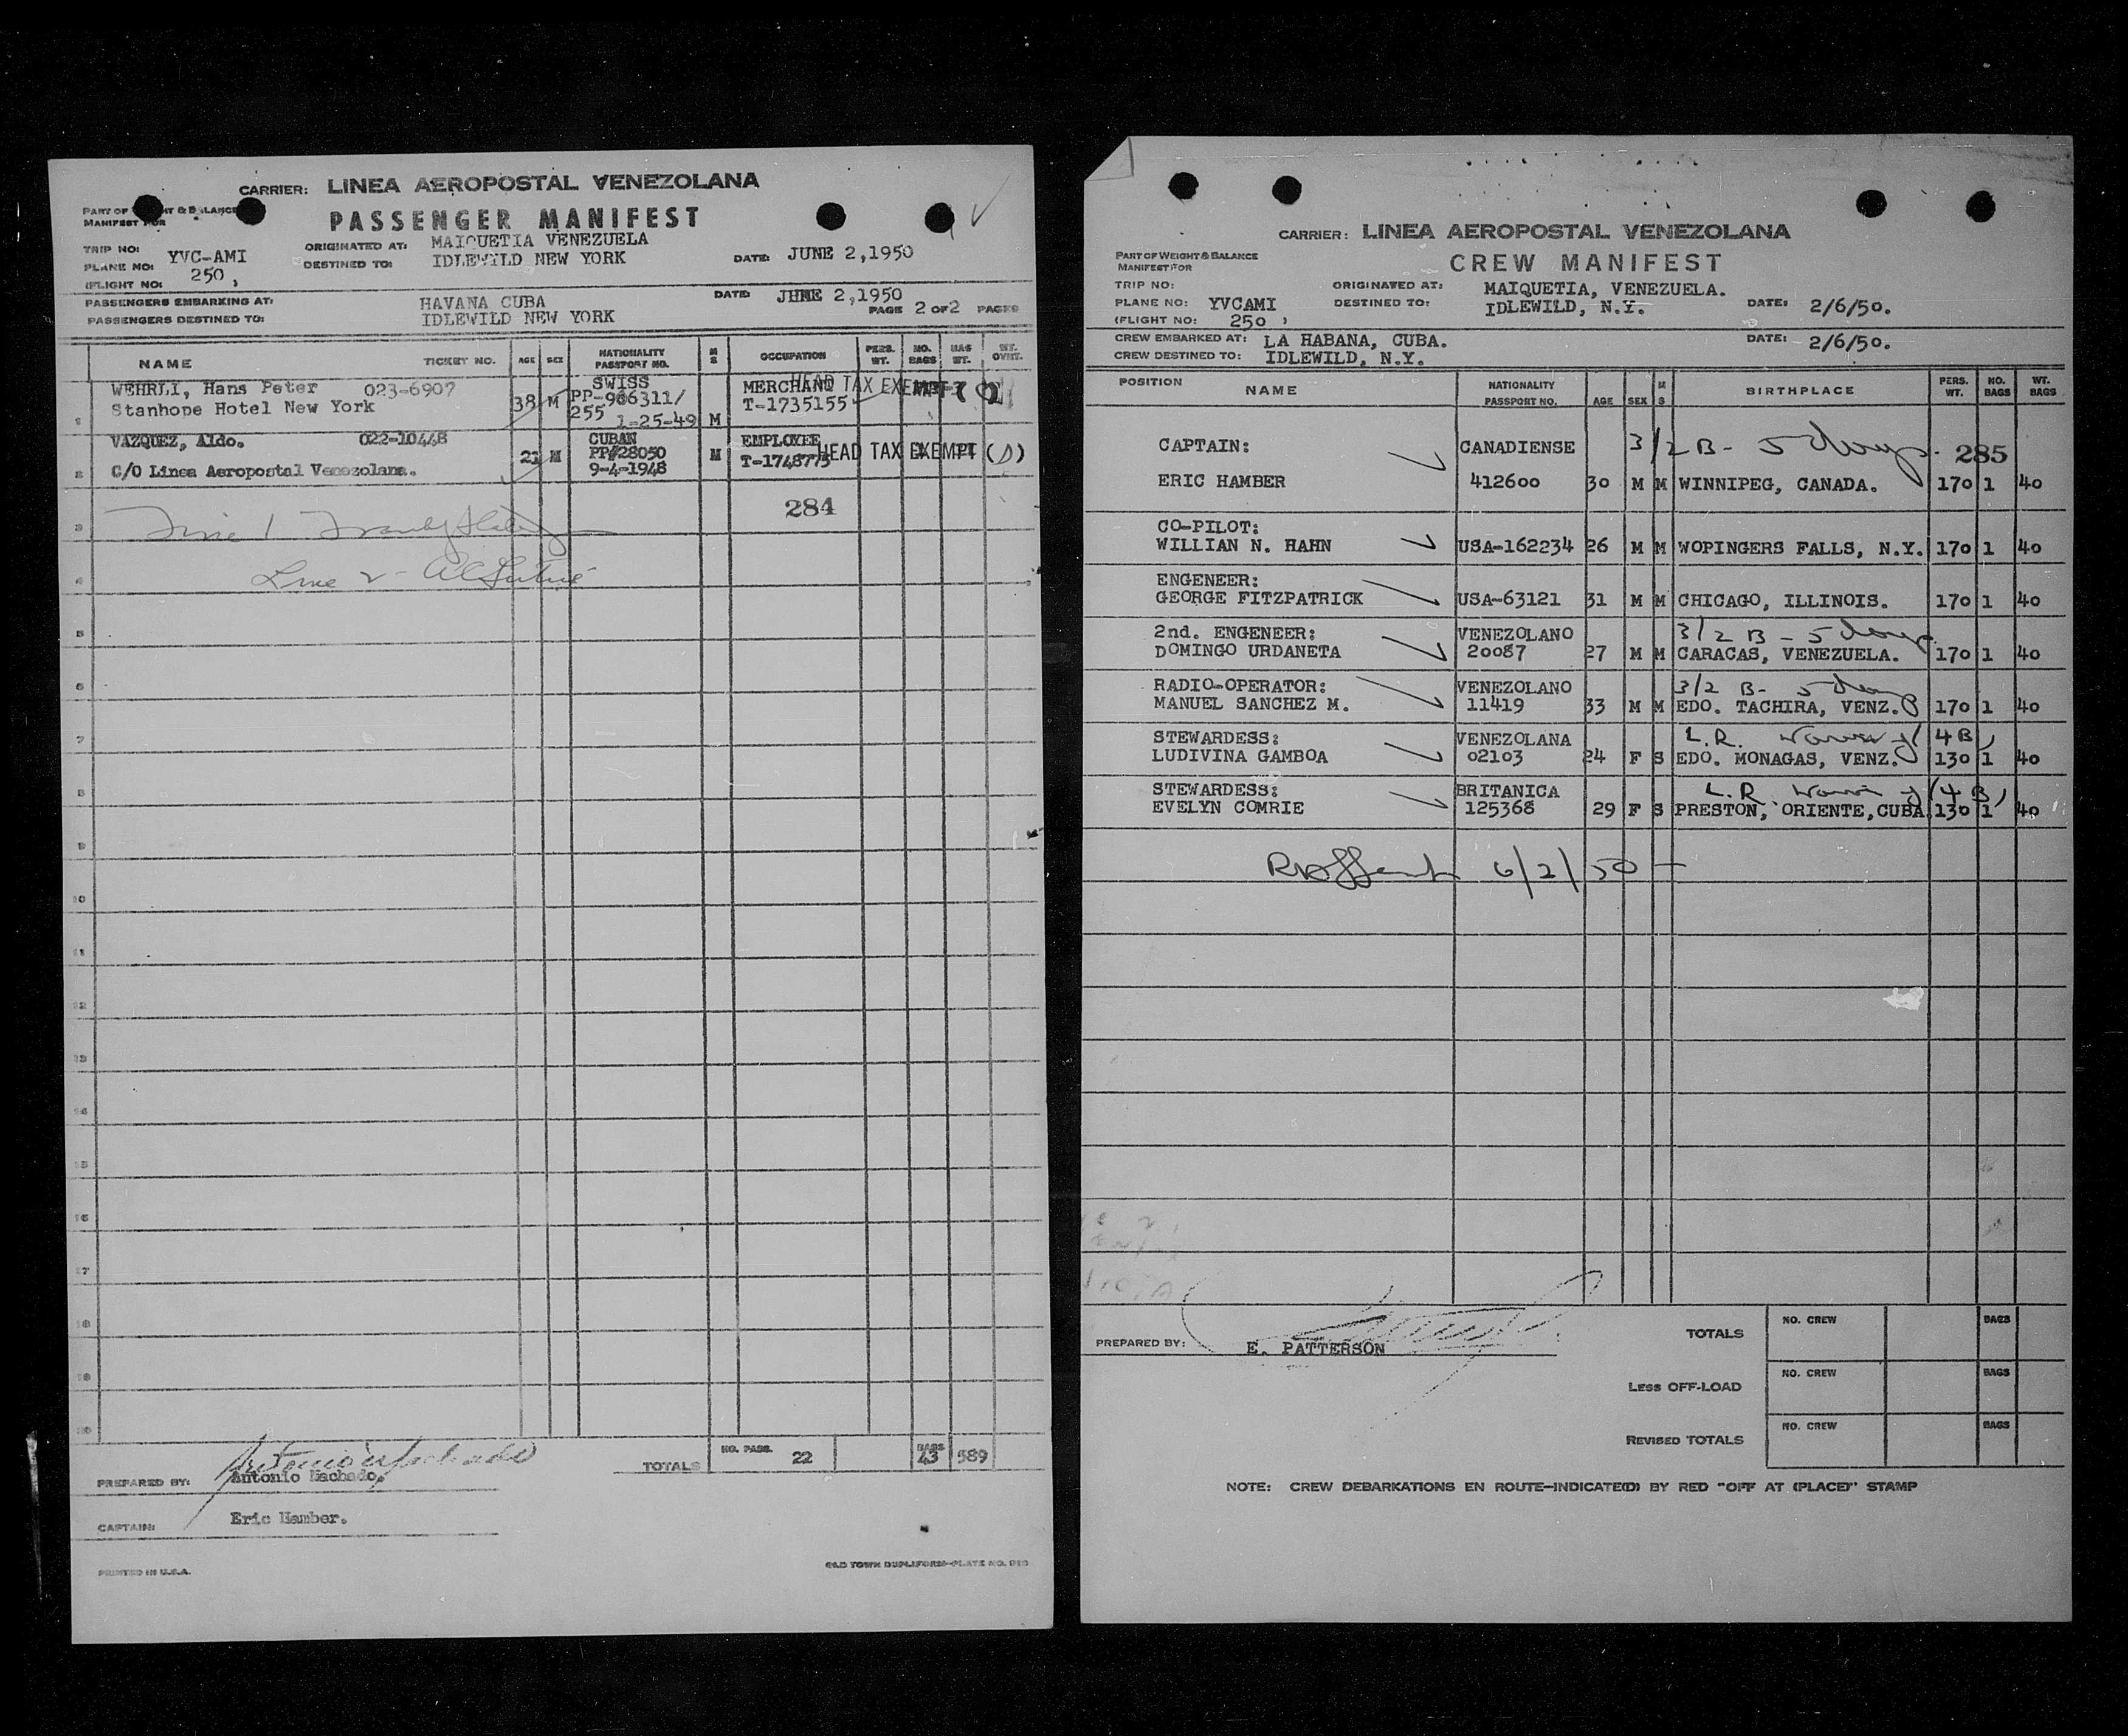 CARRIER: LINEA AEROPOSTAL VENEZOLANA
PART OF WEIGHT & BALANCE
MANIFEST FOR
PASSENGER MANIFEST
TRIP NO:
PLANE NO: YVC-AMI
(FLIGHT NO: 250 )
ORIGINATED AT: MAIQUETIA VENEZUELA
DESTINED TO: IDLEWILD NEW YORK
DATE: JUNE 2,1950
PASSENGERS EMBARKING AT: HAVANA CUBA
DATE: JUNE 2,1950
PASSENGERS DESTINED TO: IDLEWILD NEW YORK
PAGE 2 OF 2 PAGES
NAME TICKET NO. AGE SEX NATIONALITY PASSPORT NO. M S OCCUPATION PERS. WT. NO. BAGS BAG WT. WT. OVWT.
1 WEHRLI, Hans Peter 023-6907 38 M SWISS MERCHANT HEAD TAX EXEMPT
Stanhope Hotel New York PP-966311/ T-1735155
255 1-25-49 M
2 VAZQUEZ, Aldo. 022-10448 M CUBAN M EMPLOYEE
C/O Linea Aeropostal Venezolana. PP#28050 T-1748775 HEAD TAX EXEMPT
9-4-1948
284
3
Line 2 -
4
5
6
7
8
9
10
11
12
13
14
15
16
17
18
19
20
TOTALS NO. PASS. 22 BAGS 43 589
PREPARED BY: Antonio Machado.
CAPTAIN: Eric Hamber.
PRINTED IN U.S.A.
OLD TOWN DUPLIFORM-PLATE NO.
CARRIER: LINEA AEROPOSTAL VENEZOLANA
PART OF WEIGHT & BALANCE
MANIFEST FOR
CREW MANIFEST
TRIP NO:
PLANE NO: YVCAMI
(FLIGHT NO: 250 )
ORIGINATED AT: MAIQUETIA, VENEZUELA.
DESTINED TO: IDLEWILD, N.Y.
DATE: 2/6/50.
CREW EMBARKED AT: LA HABANA, CUBA.
DATE: 2/6/50.
CREW DESTINED TO: IDLEWILD, N.Y.
POSITION NAME NATIONALITY PASSPORT NO. AGE SEX M S BIRTHPLACE PERS. WT. NO. BAGS WT. BAGS
CAPTAIN: CANADIENSE 3/2 B - 5 days. 285
ERIC HAMBER 412600 30 M M WINNIPEG, CANADA. 170 1 40
CO-PILOT:
WILLIAN N. HAHN USA-162234 26 M M WOPINGERS FALLS, N.Y. 170 1 40
ENGENEER:
GEORGE FITZPATRICK USA-63121 31 M M CHICAGO, ILLINOIS. 170 1 40
2nd. ENGENEER: VENEZOLANO 3/2 B - 5 days
DOMINGO URDANETA 20087 27 M M CARACAS, VENEZUELA. 170 1 40
RADIO-OPERATOR: VENEZOLANO 3/2 B- 5 days
MANUEL SANCHEZ M. 11419 33 M M EDO. TACHIRA, VENZ. 170 1 40
STEWARDESS: VENEZOLANA L.R. 4B)
LUDIVINA GAMBOA 02103 24 F S EDO. MONAGAS, VENZ. 130 1 40
STEWARDESS: BRITANICA L.R (4 B)
EVELYN COMRIE 125368 29 F S PRESTON, ORIENTE, CUBA 130 1 40
6/2/50
PREPARED BY: E. PATTERSON
TOTALS NO. CREW BAGS
LESS OFF-LOAD NO. CREW BAGS
REVISED TOTALS NO. CREW BAGS
NOTE: CREW DEBARKATIONS EN ROUTE-INDICATE(D) BY RED "OFF AT (PLACE)" STAMP